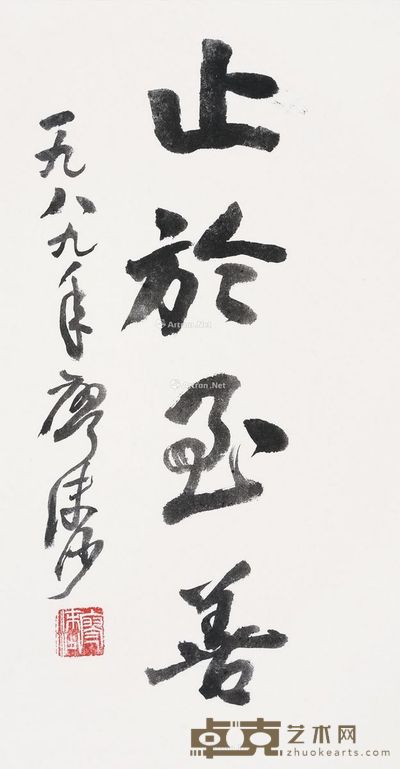 止於至善
一九八九年 廖沫沙
Artron.Net
Artron.Net
卓克艺术网
zhuokearts.com